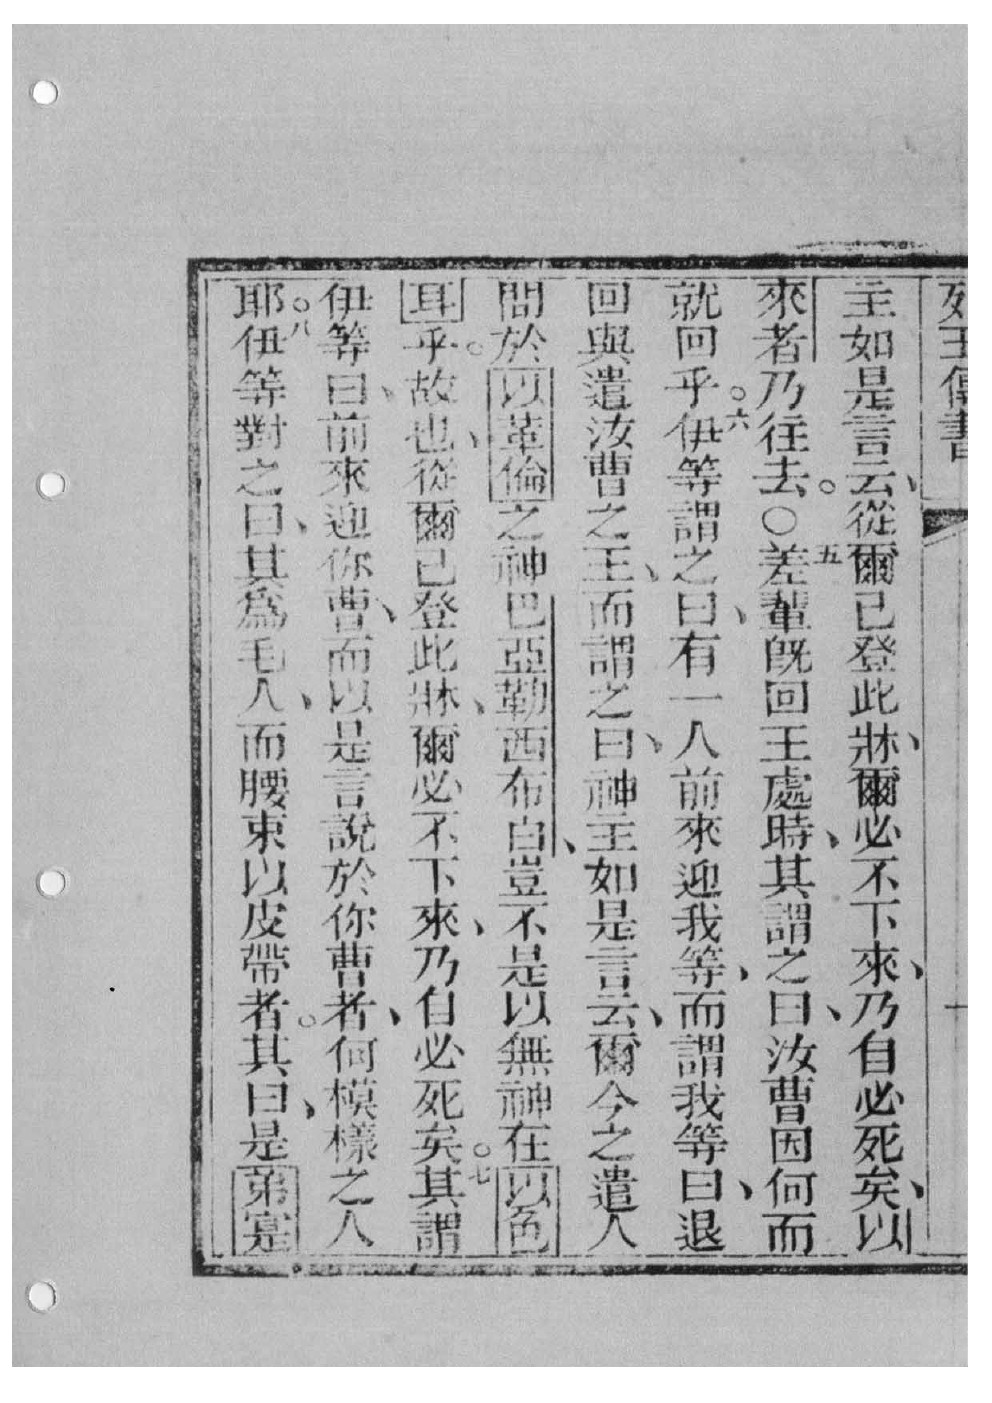 列王傳書
主如是言云、從爾已登此牀、爾必不下來、乃自必死矣、以
來者乃往去。〇五差輩旣回王處時、其謂之曰、汝曹因何而
就回乎。六伊等謂之曰、有一人前來迎我等、而謂我等曰、退
回與遣汝曹之王、而謂之曰、神主如是言云、爾今之遣人
問於以革倫之神巴亞勒西布白、豈不是以無神在以色
耳乎。故也、從爾已登此牀、爾必不下來、乃自必死矣。七其謂
伊等曰、前來迎你曹、而以是言說於你曹者、何模樣之人
耶。八伊等對之曰、其爲毛人、而腰束以皮帶者。其曰、是弟寔